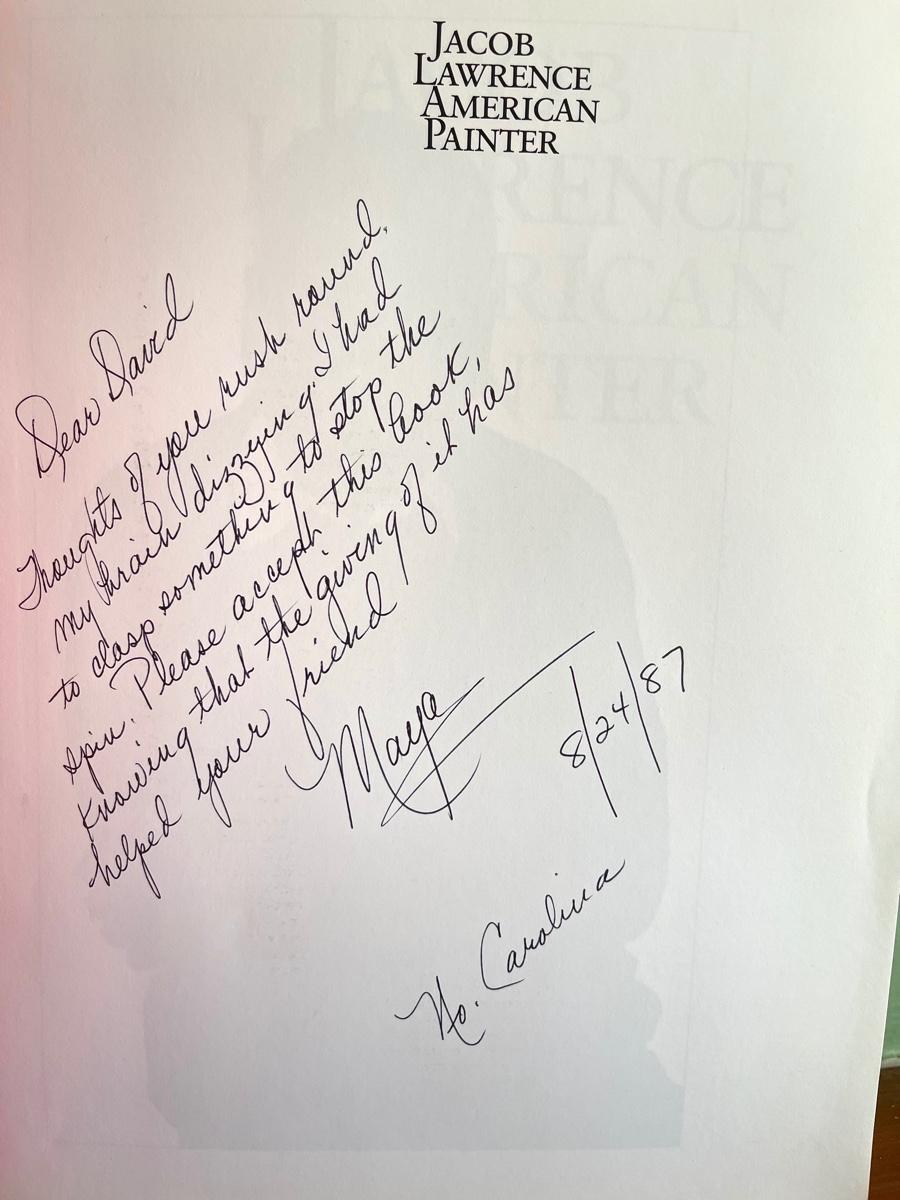 JACOB
LAWRENCE
AMERICAN
PAINTER
Dear David
Thoughts of you rush round.
my brain dizzying. I had
to clasp something to stop the
spin. Please accept this book,
knowing that the giving of it has
helped your friend
Maya
8/24/87
No. Carolina
RENCE
RICAN
TER